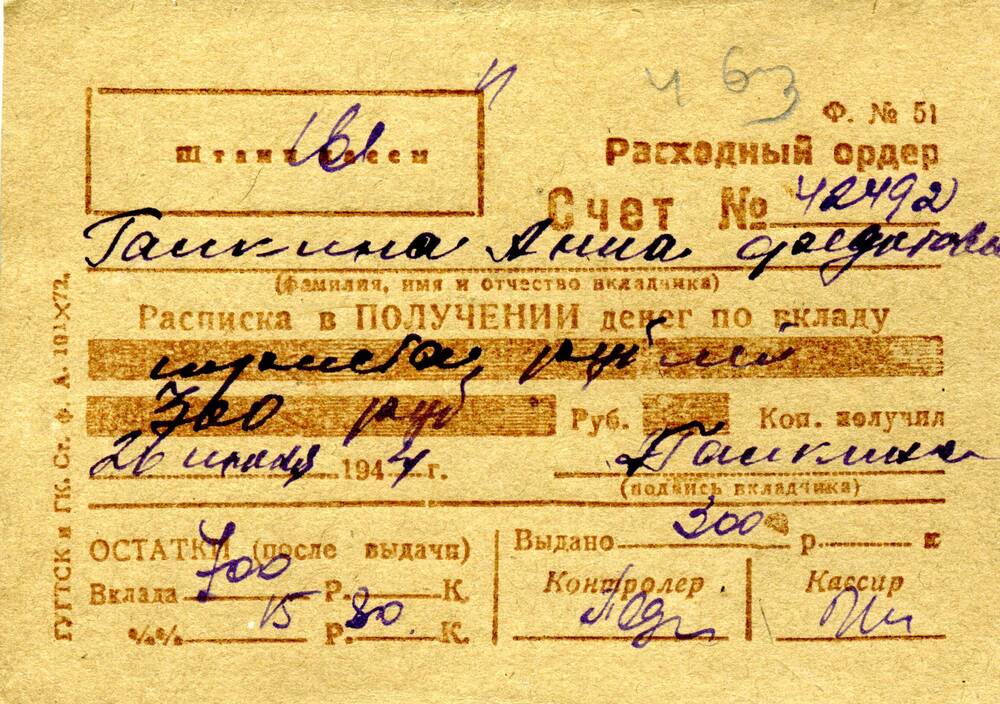 и
ч 63
Ф. № 51
161
Штамп кассы
Расходный ордер
Счет № 42492
Гашкина Анна Федотовн
(фамилия, имя и отчество вкладчика)
Расписка в ПОЛУЧЕНИИ денег по вкладу
триста рублей
300 руб Руб. Коп. получил
26 июня 1944 г. Гашкина
(подпись вкладчика)
ОСТАТКИ (после выдачи)
Вклада 700 Р. К.
%% 15 Р. 80 К.
Выдано 300 р. к
Контролер
Кассир
ГУГТСК и ГК. Ст. ф. А. 191X72.